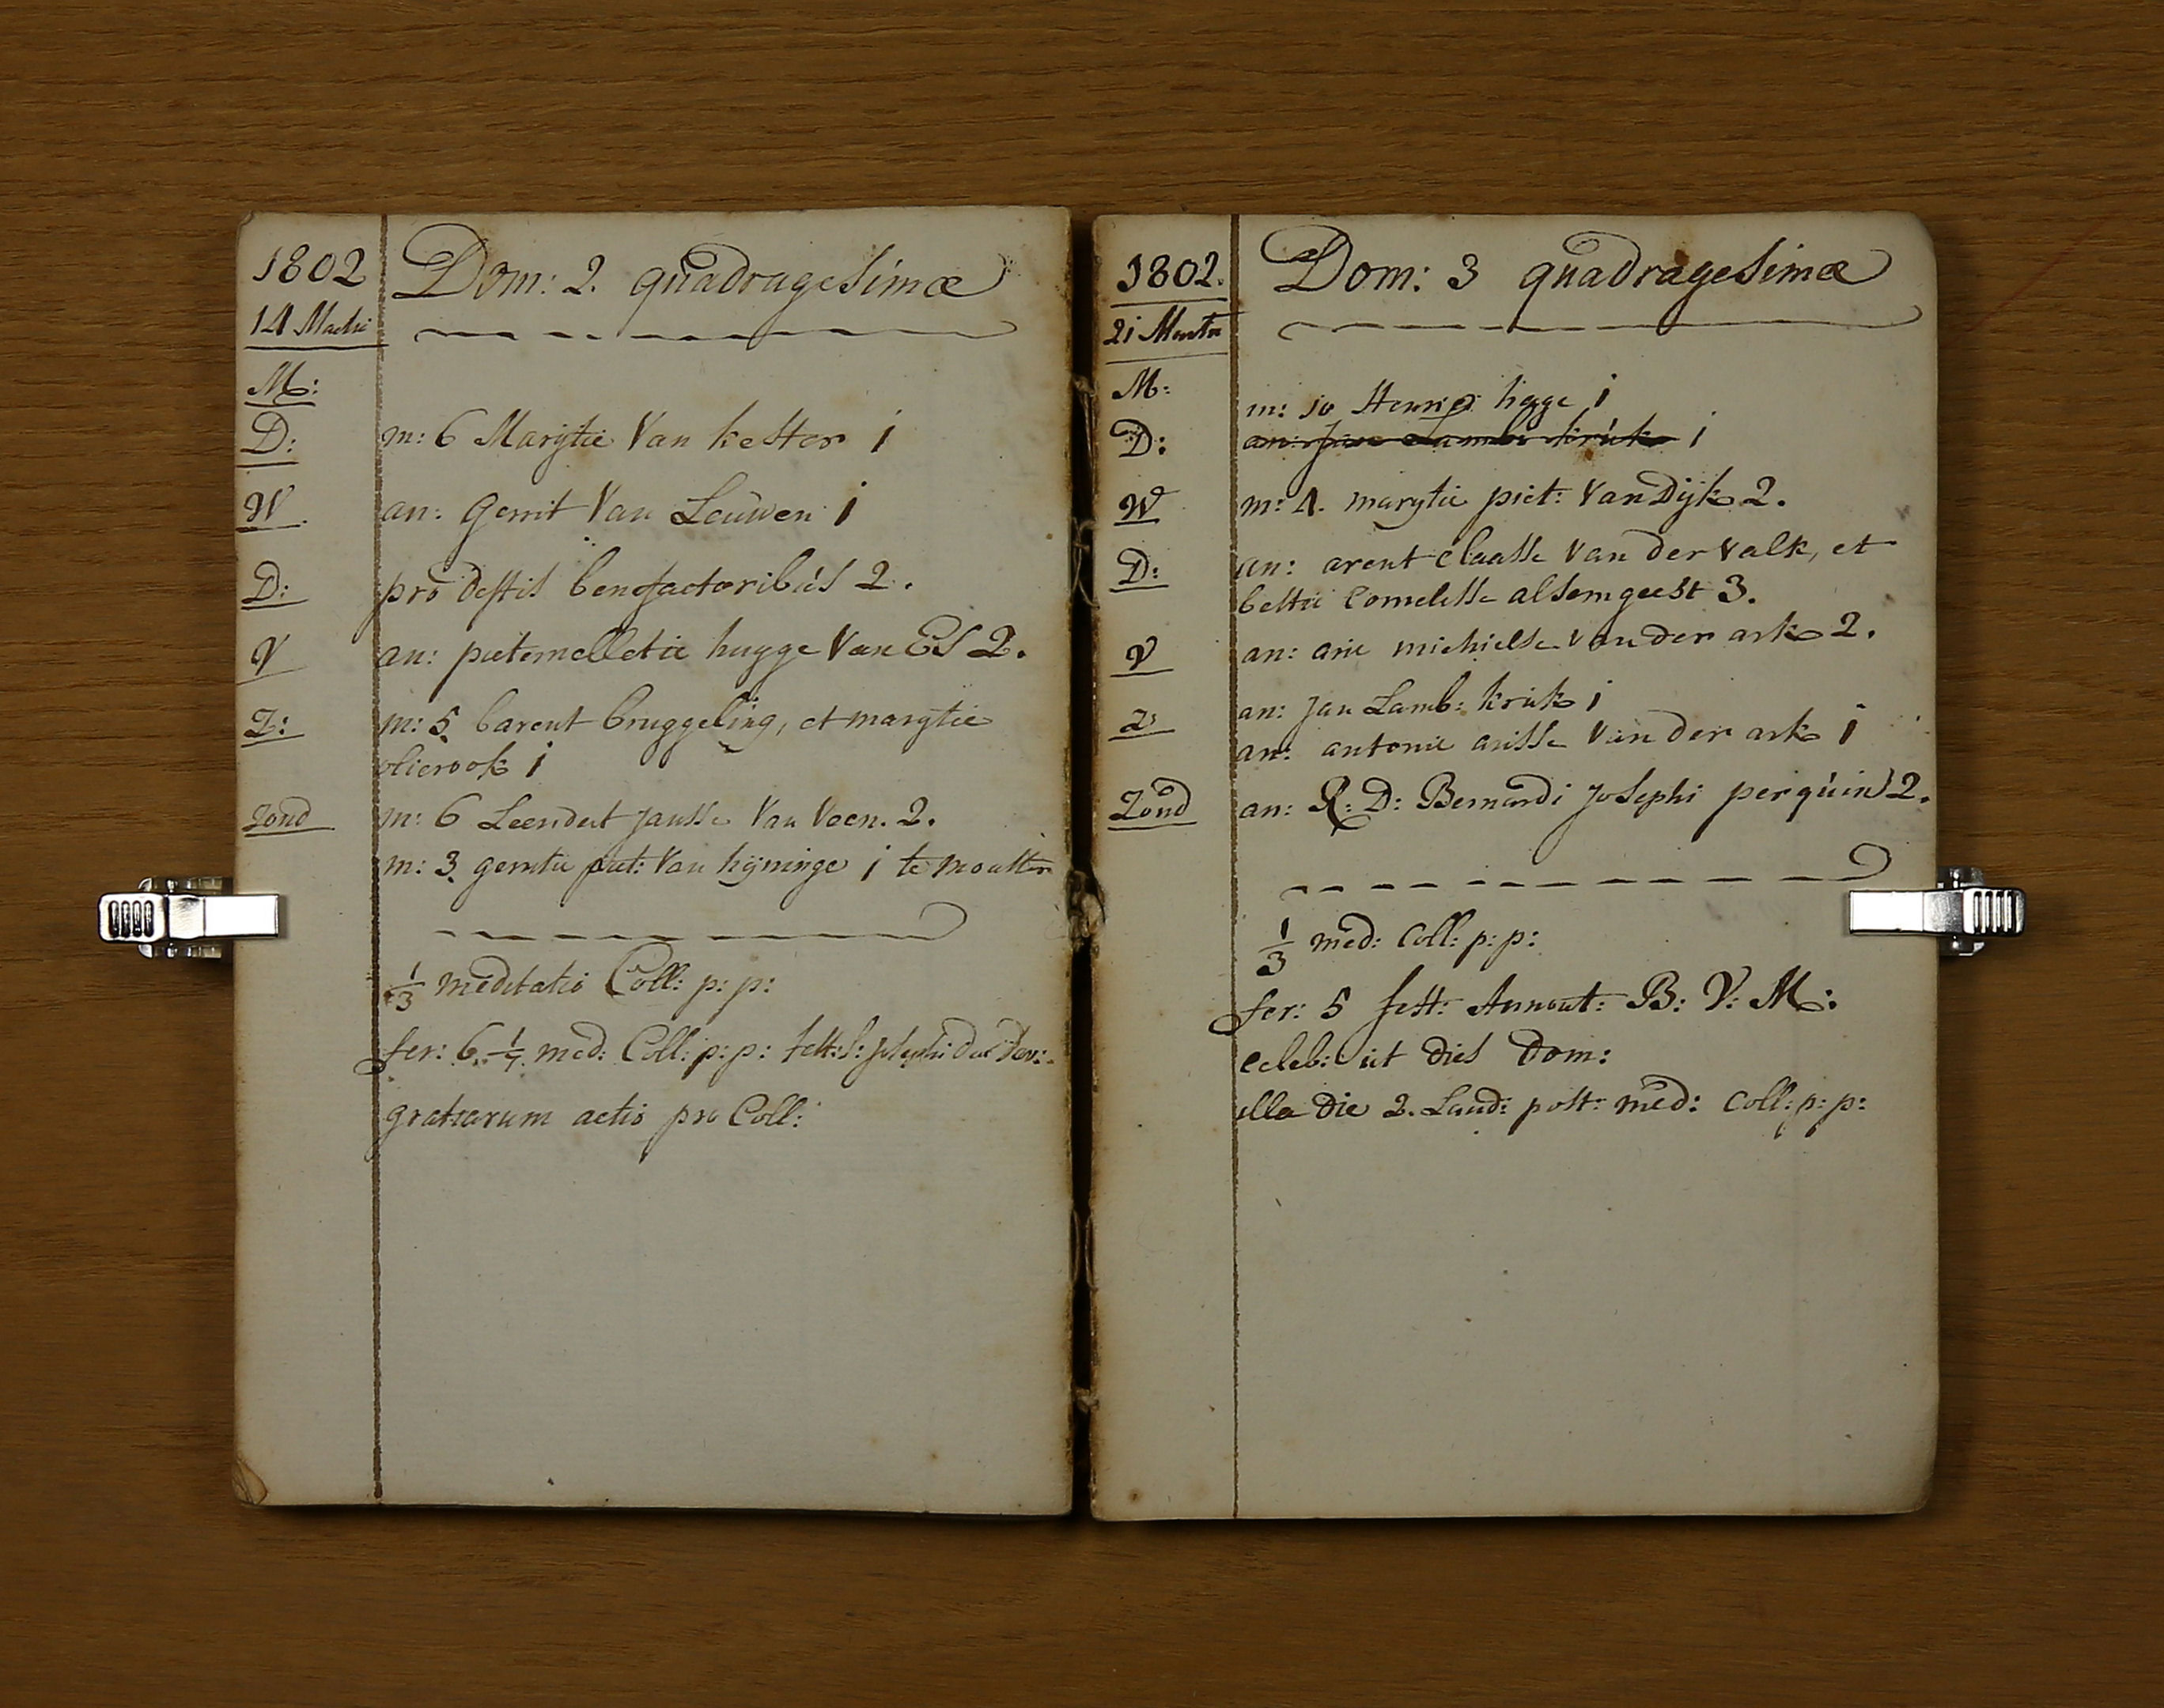 1802 Dom: 2. quadragesimæ
14 Martii
M:
D: m: 6 Marijtie Van kester 1
W. an: Gerrit Van Leuwen 1
D: pro deftis benefactoribus 2.
V an: hugge Van ES 2.
Z: m: 5 barent bruggeling, et marytie
olierook 1
Zond m: 6 Leendert Jansse Van Veen. 2.
m: 3. gerritie piet: Van hijninge 1 te
1/3 meditatio Coll: p: p:
fer: 6. med: Coll: p: p: fest: S: Josephi
gratiarum actio pro Coll:
1802. Dom: 3 quadragesimæ
21 Martii
M: m: 10 hegge 1
D: an: Jan Lamb: kruk 1
W m: 4. marytie piet: Van Dijk 2.
D: an: arent claasse Van der Valk, et
cornelisse alsemgeest 3.
V an: arie michielse Van der ark 2.
Z an: Jan Lamb: kruk 1
an: antonie arisse Van der ark 1
Zond an: R: D: Bernardi Josephi perquin 2.
1/3 med: Coll: p: p:
fer: 5 fest: Annont: B: V: M:
celeb: ut dies Dom:
illa die 2. Laud: post: med: Coll: p: p: